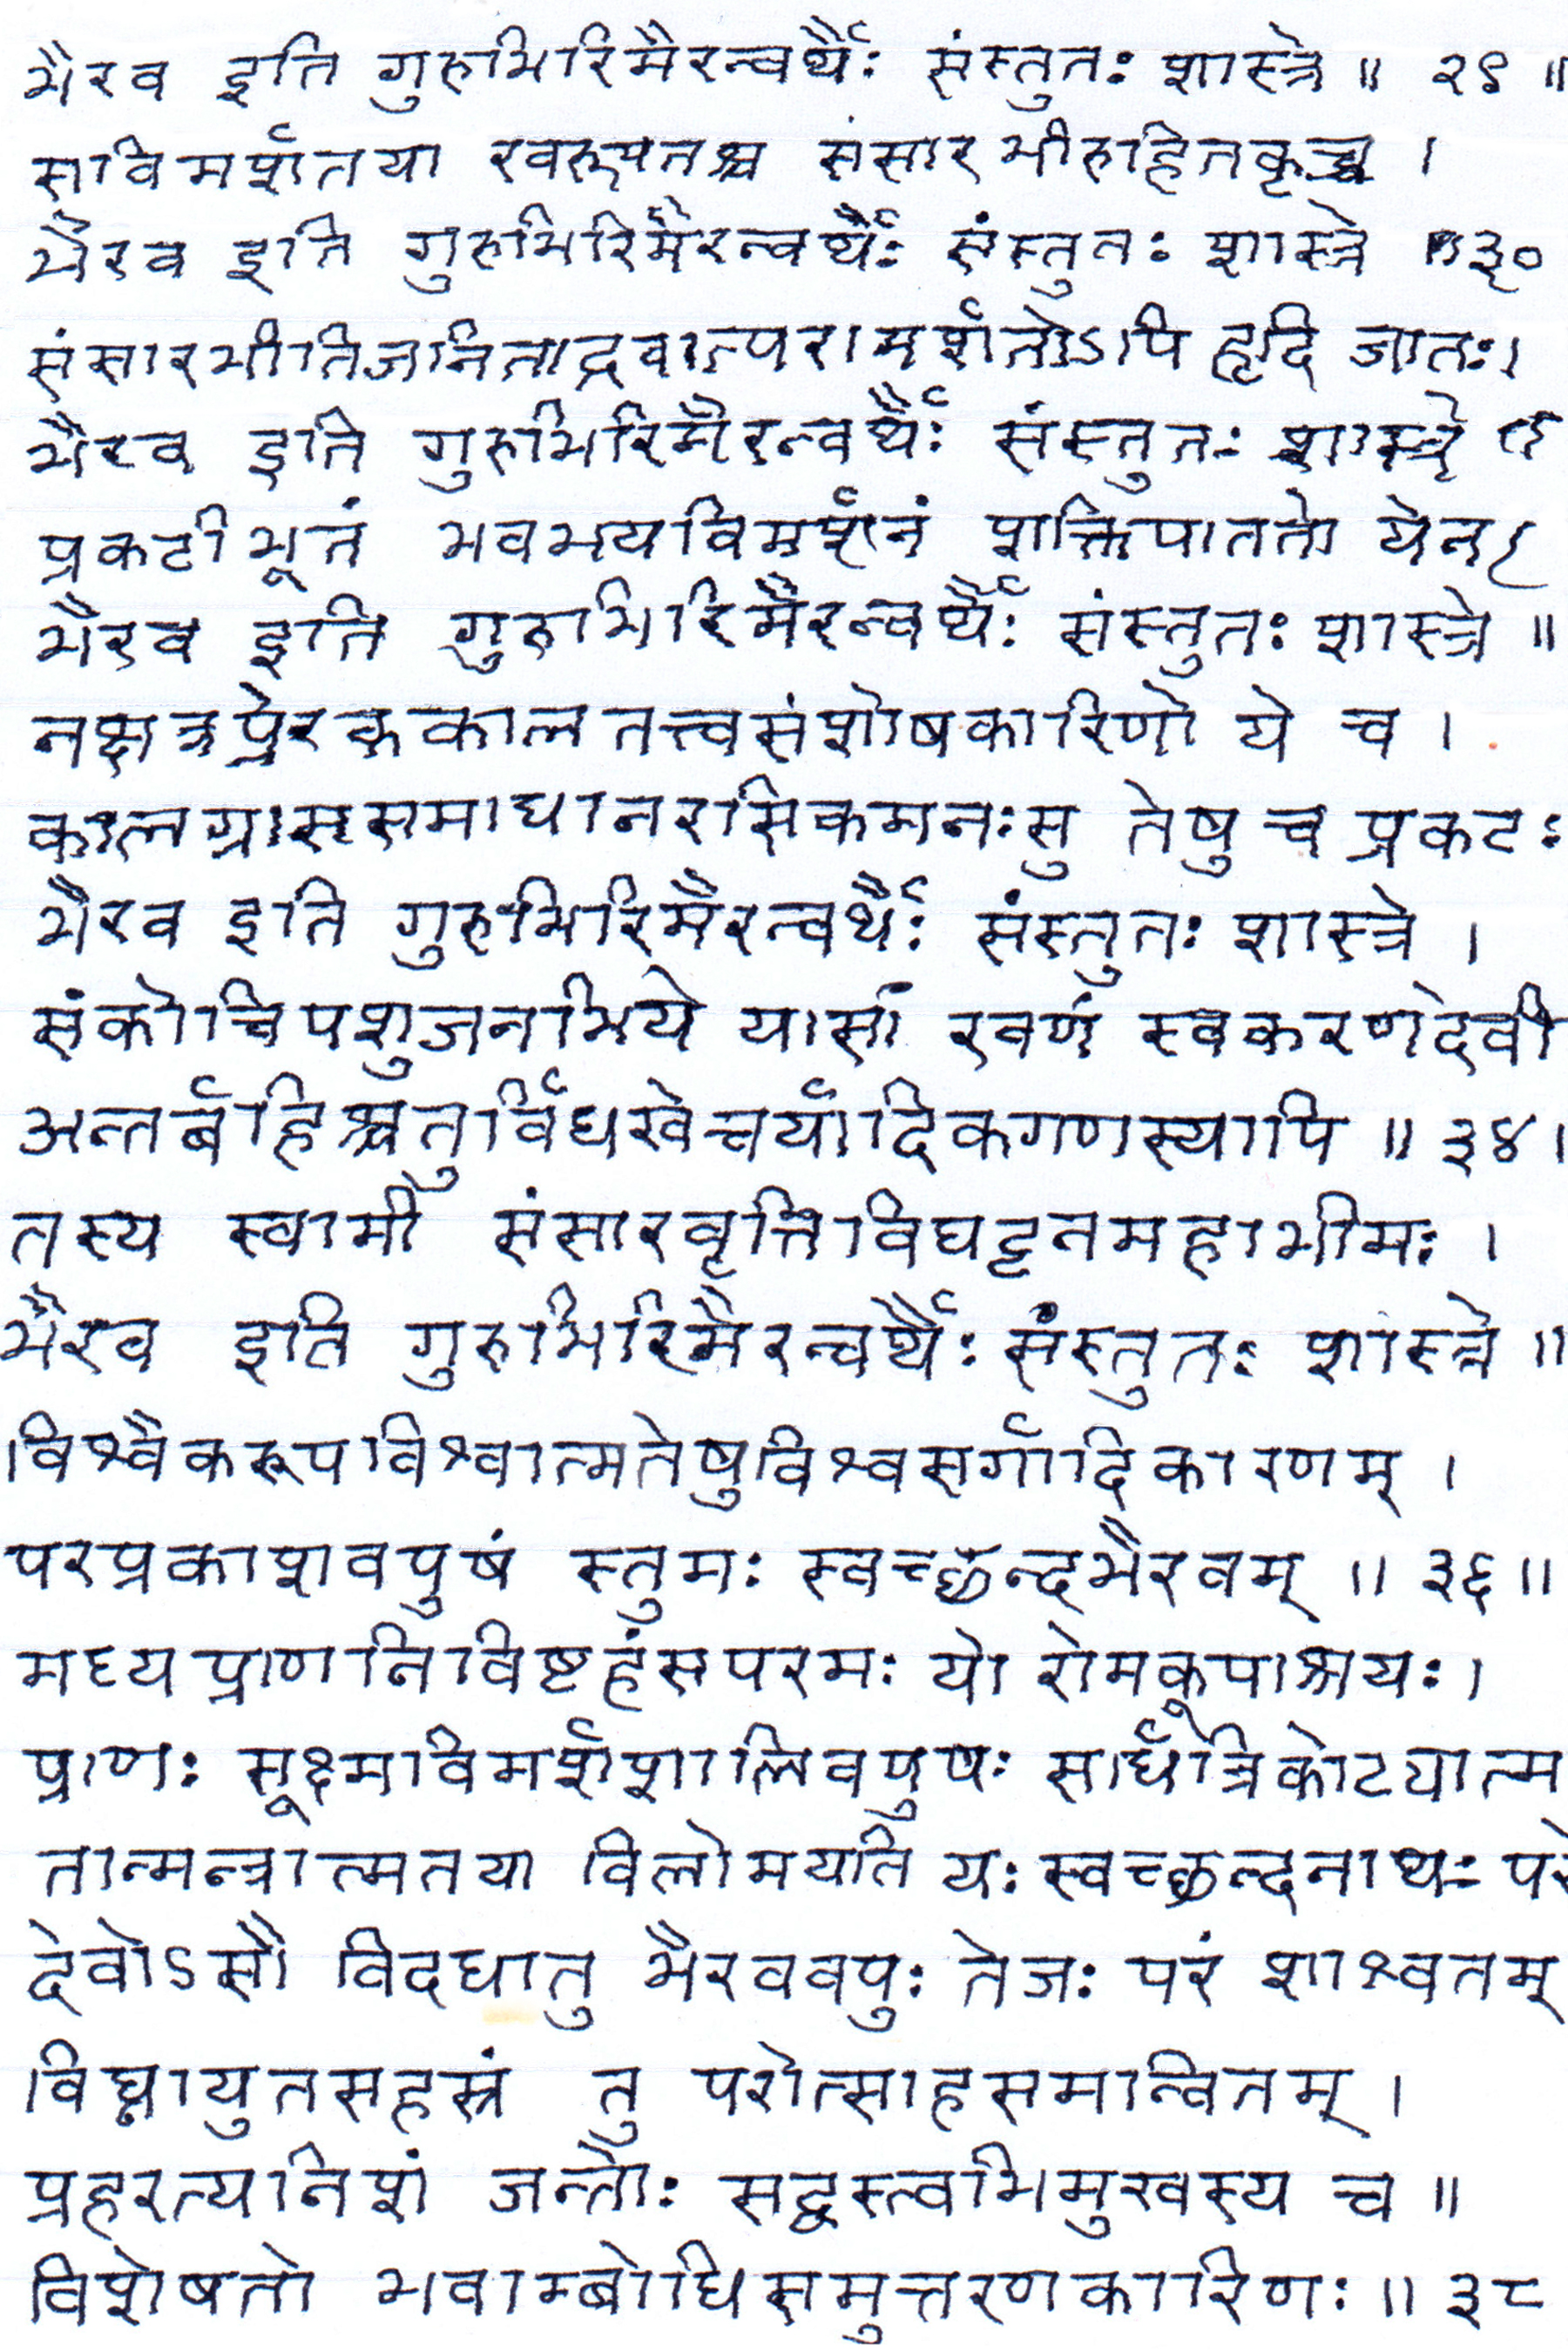 भैरव इति गुरुभिरिमैरन्वर्थैः संस्तुतः शास्त्रे ॥ २९ ॥
सविमर्शतया रवरूपतश्च संसारभीरुहितकृच्च ।
भैरव इति गुरुभिरिमैरन्वर्थैः संस्तुतः शास्त्रे ॥३०
संसारभीतिजनिताद्रवात्परामर्शतोऽपि हृदि जातः।
भैरव इति गुरुभिरिमैरन्वर्थैः संस्तुतः शास्त्रे
प्रकटीभूतं भवभयविमर्शनं शक्तिपाततो येन
भैरव इति गुरुभिरिमैरन्वर्थैः संस्तुतः शास्त्रे ॥
नक्षत्रप्रेरककालतत्त्वसंशोषकारिणो ये च ।
कालग्राससमाधानरसिकमनःसु तेषु च प्रकटः
भैरव इति गुरुभिरिमैरन्वर्थैः संस्तुतः शास्त्रे ।
संकोचिपशुजनभिये यासां रवणं स्वकरणदेवी
अन्तर्बहिश्चतुर्विधखेचर्यादिकगणस्यापि ॥ ३४।
तस्य स्वामी संसारवृत्तिविघट्टनमहाभीमः ।
भैरव इति गुरुभिरिमैरन्वर्थैः संस्तुतः शास्त्रे ॥
विश्वैकरूपविश्वात्मतेषुविश्वसर्गादिकारणम् ।
परप्रकाशवपुषं स्तुमः स्वच्छन्दभैरवम् ॥ ३६ ॥
मध्यप्राणनिविष्टहंसपरमः यो रोमकूपाश्रयः।
प्राणः सूक्ष्मविमर्शशालिवपुषः सार्धत्रिकोट्यात्म
तान्मन्त्रात्मतया विलोमयति यः स्वच्छन्दनाथः परो
देवोऽसौ विदधातु भैरववपुः तेजः परं शाश्वतम्
विघ्नायुतसहस्रं तु परोत्साहसमान्वितम् ।
प्रहरत्यनिशं जन्तोः सद्वस्त्वभिमुखस्य च ॥
विशेषतो भवाम्बोधिसमुत्तरणकारिणः ॥ ३८